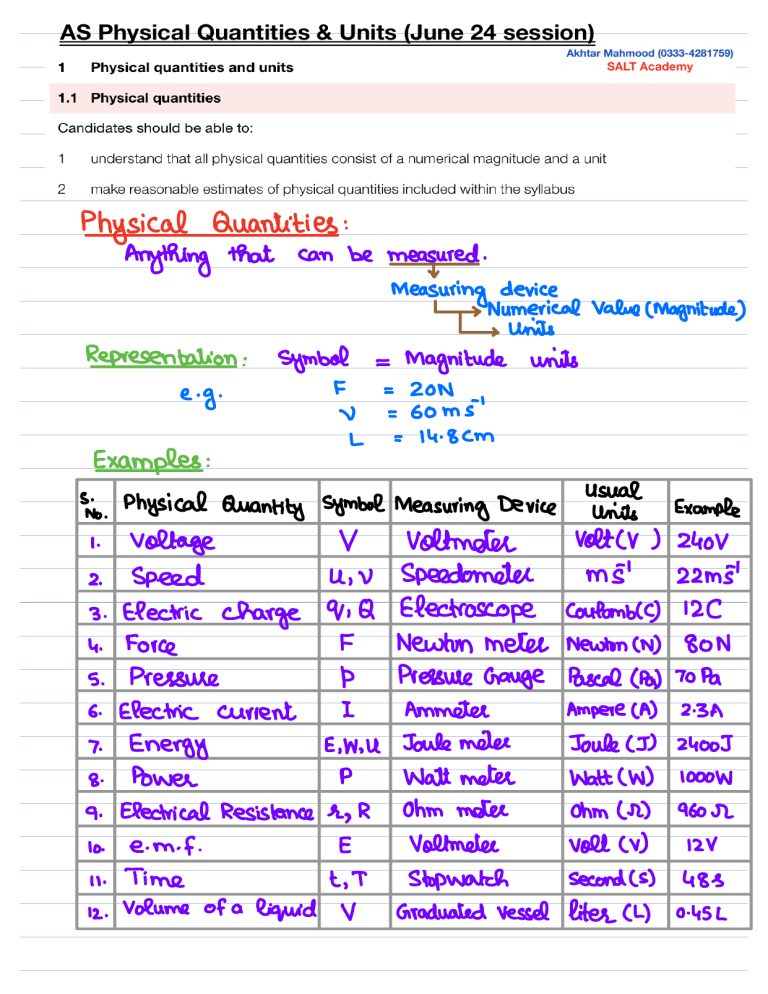 AS Physical Quantities & Units (June 24 session)
Akhtar Mahmood (0333-4281759)
SALT Academy
1 Physical quantities and units
1.1 Physical quantities
Candidates should be able to:
1 understand that all physical quantities consist of a numerical magnitude and a unit
2 make reasonable estimates of physical quantities included within the syllabus
Physical Quantities:
Anything that can be measured.
Measuring device
Numerical Value (Magnitude)
Units
Representation: Symbol = Magnitude units
e.g. F = 20N
v = 60ms⁻¹
L = 14.8cm
Examples:
S. No. Physical Quantity Symbol Measuring Device Usual Units Example
1. Voltage V Voltmeter Volt(V) 240V
2. Speed u, v Speedometer ms⁻¹ 22ms⁻¹
3. Electric charge q, Q Electroscope Coulomb(C) 12C
4. Force F Newton meter Newton (N) 80N
5. Pressure p Pressure Gauge Pascal (Pa) 70 Pa
6. Electric current I Ammeter Ampere (A) 2.3A
7. Energy E, W, U Joule meter Joule (J) 2400J
8. Power P Watt meter Watt (W) 1000W
9. Electrical Resistance r, R Ohm meter Ohm (Ω) 960 Ω
10. e.m.f. E Voltmeter Volt (V) 12V
11. Time t, T Stopwatch Second (s) 48s
12. Volume of a liquid V Graduated vessel liter (L) 0.45L